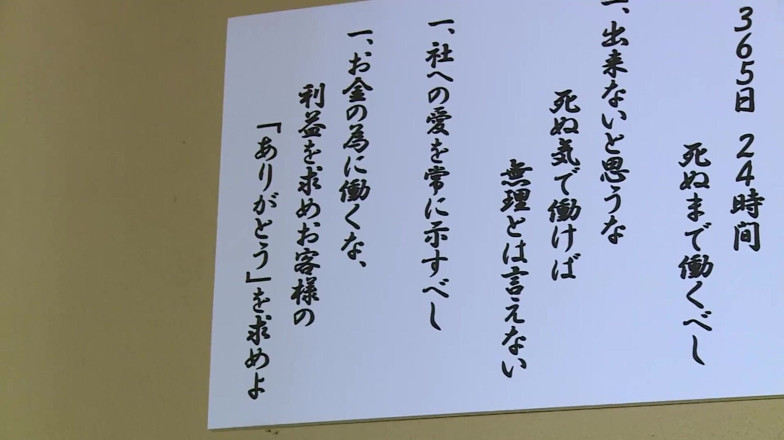 365日 24時間
死ぬまで働くべし
一、出来ないと思うな
死ぬ気で働けば
無理とは言えない
一、社への愛を常に示すべし
一、お金の為に働くな、
利益を求めお客様の
「ありがとう」を求めよ